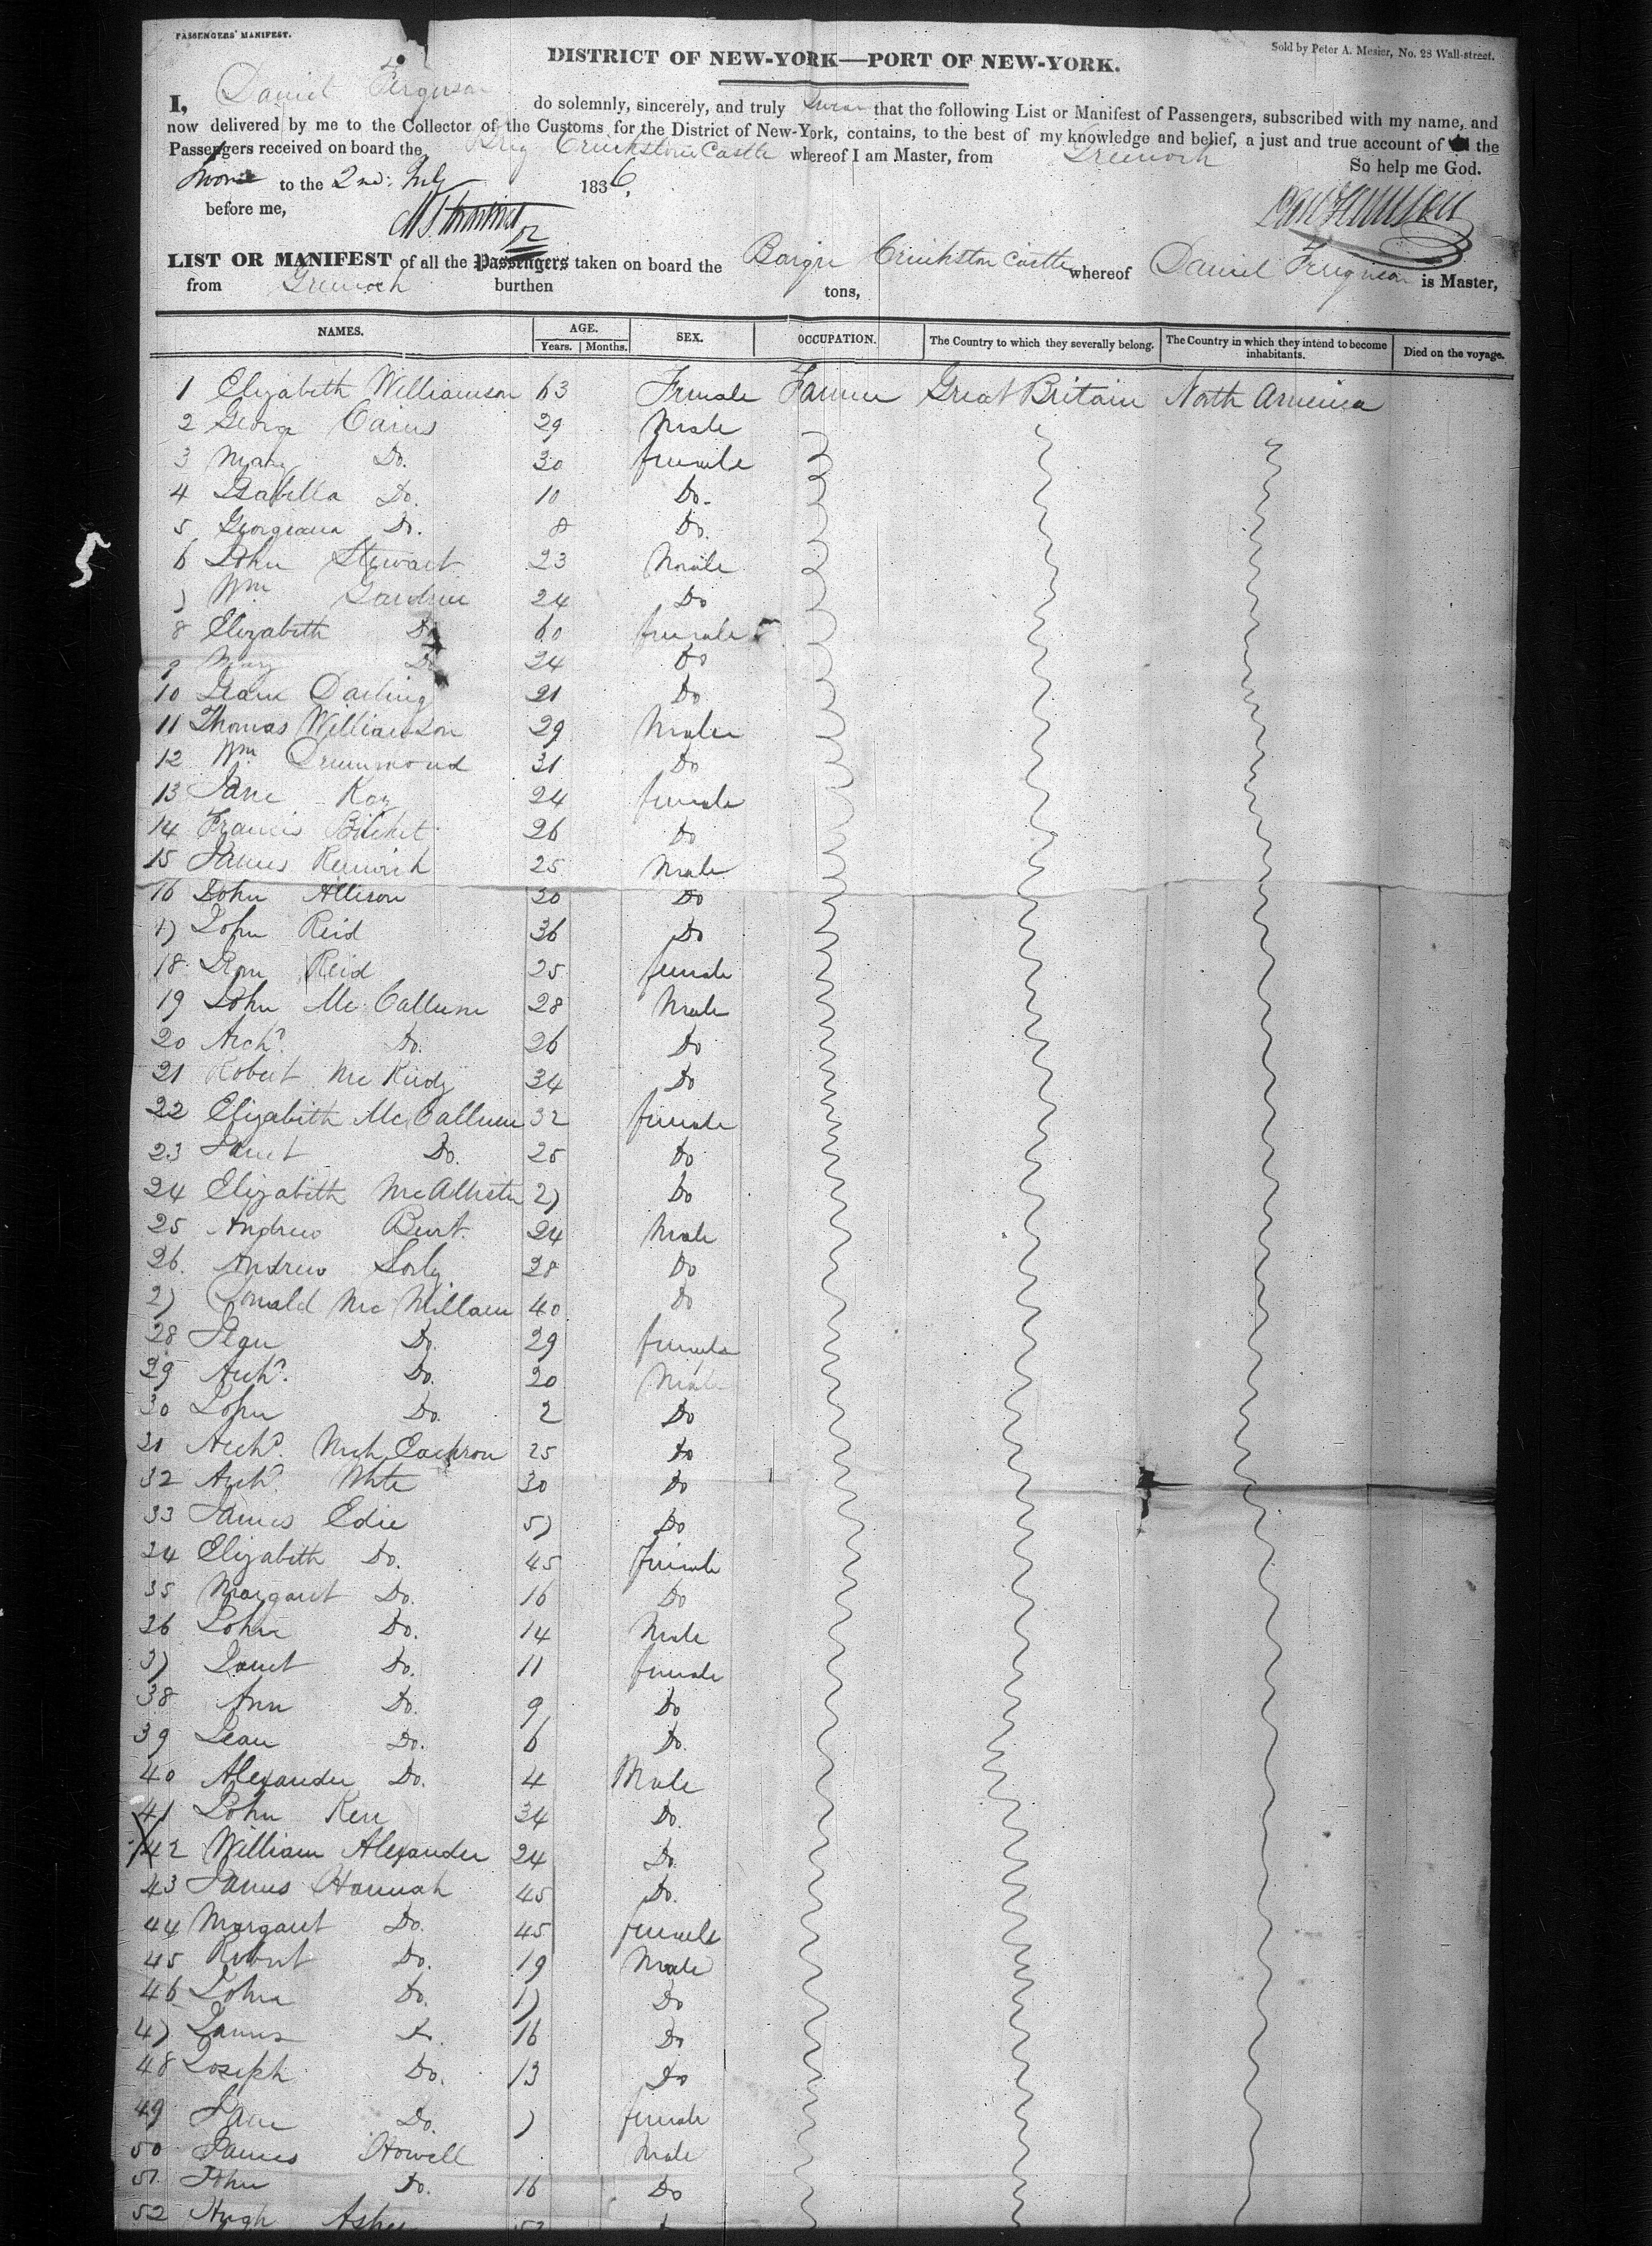 PASSENGERS' MANIFEST.
Sold by Peter A. Mesier, No. 28 Wall-street.
DISTRICT OF NEW-YORK—PORT OF NEW-YORK.
I, Daniel Ferguson do solemnly, sincerely, and truly swear that the following List or Manifest of Passengers, subscribed with my name, and
now delivered by me to the Collector of the Customs for the District of New-York, contains, to the best of my knowledge and belief, a just and true account of all the
Passengers received on board the Brig Cruikstone Castle whereof I am Master, from Greenock
So help me God.
Sworn to the 2nd: July 1836,
before me,
LIST OR MANIFEST of all the Passengers taken on board the Barque Cruikston Castle whereof Daniel Ferguson is Master,
from Greenock burthen tons,
NAMES. AGE. Years. Months. SEX. OCCUPATION. The Country to which they severally belong. The Country in which they intend to become inhabitants. Died on the voyage.
1 Elizabeth Williamson 63 Female Farmer Great Britain North America
2 George Cairns 29 Male
3 Mary Do. 30 female
4 Isabella Do. 10 Do.
5 Georgeana Do. 8 Do.
6 John Stewart 23 Male
7 Wm Gardner 24 Do
8 Elizabeth Do 60 female
9 Mary Do 24 Do
10 Jean Darling 21 Do
11 Thomas Williamson 29 Male
12 Wm Drummond 31 Do
13 Jane Kay 24 female
14 Francis 26 Do
15 James Renwick 25 Male
16 John Allison 30 Do
17 John Reid 36 Do
18 Reid 25 female
19 John McCallum 28 Male
20 Archd. Do. 26 Do
21 Robert McKirdy 34 Do
22 Elizabeth McCallum 32 female
23 Janet Do. 25 Do
24 Elizabeth McAllister 27 Do
25 Andrew Burt. 24 Male
26. Andrew Sorly 28 Do
27 Donald McMillan 40 Do
28 Jean Do. 29 female
29 Archd. Do. 20 Male
30 John Do. 2 Do
31 Archd. 25 Do
32 Archd. Whte 30 Do
33 James Edie 57 Do
34 Elizabeth Do. 45 female
35 Margaret Do. 16 Do
36 John Do. 14 Male
37 Janet Do. 11 female
38 Ann Do. 9 Do
39 Jean Do. 6 Do.
40 Alexander Do. 4 Male
41 John Kerr 34 Do.
42 William Alexander 24 Do.
43 James Hannah 45 Do.
44 Margaret Do. 45 female
45 Robert Do. 19 Male
46 John Do. 17 Do
47 James Do. 16 Do
48 Joseph Do. 13 Do
49 Jane Do. 7 female
50 James Howell Male
51. John Do. 16 Do
52 Hugh
5